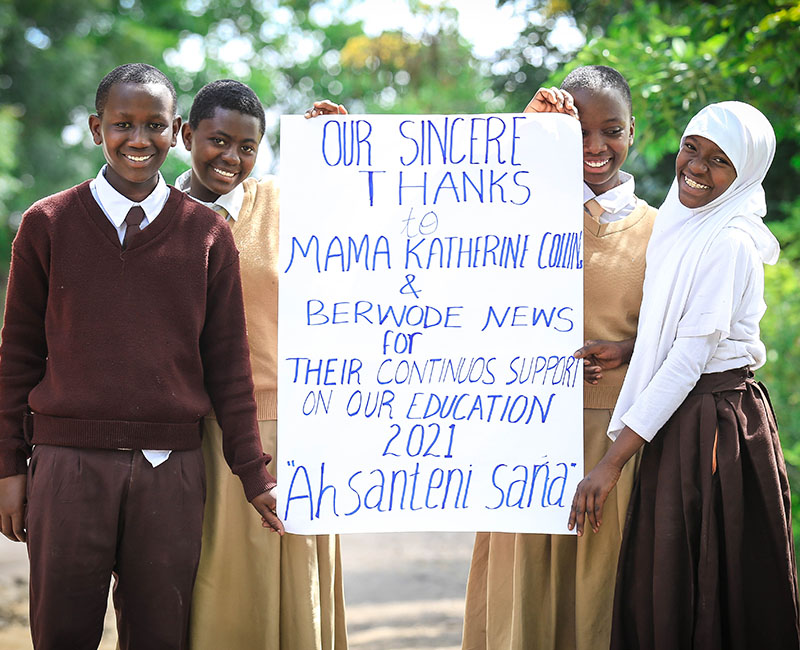 OUR SINCERE
THANKS
to
MAMA KATHERINE COLLINS
&
BERWODE NEWS
for
THEIR CONTINUOS SUPPORT
ON OUR EDUCATION
2021
"Ahsanteni sana"